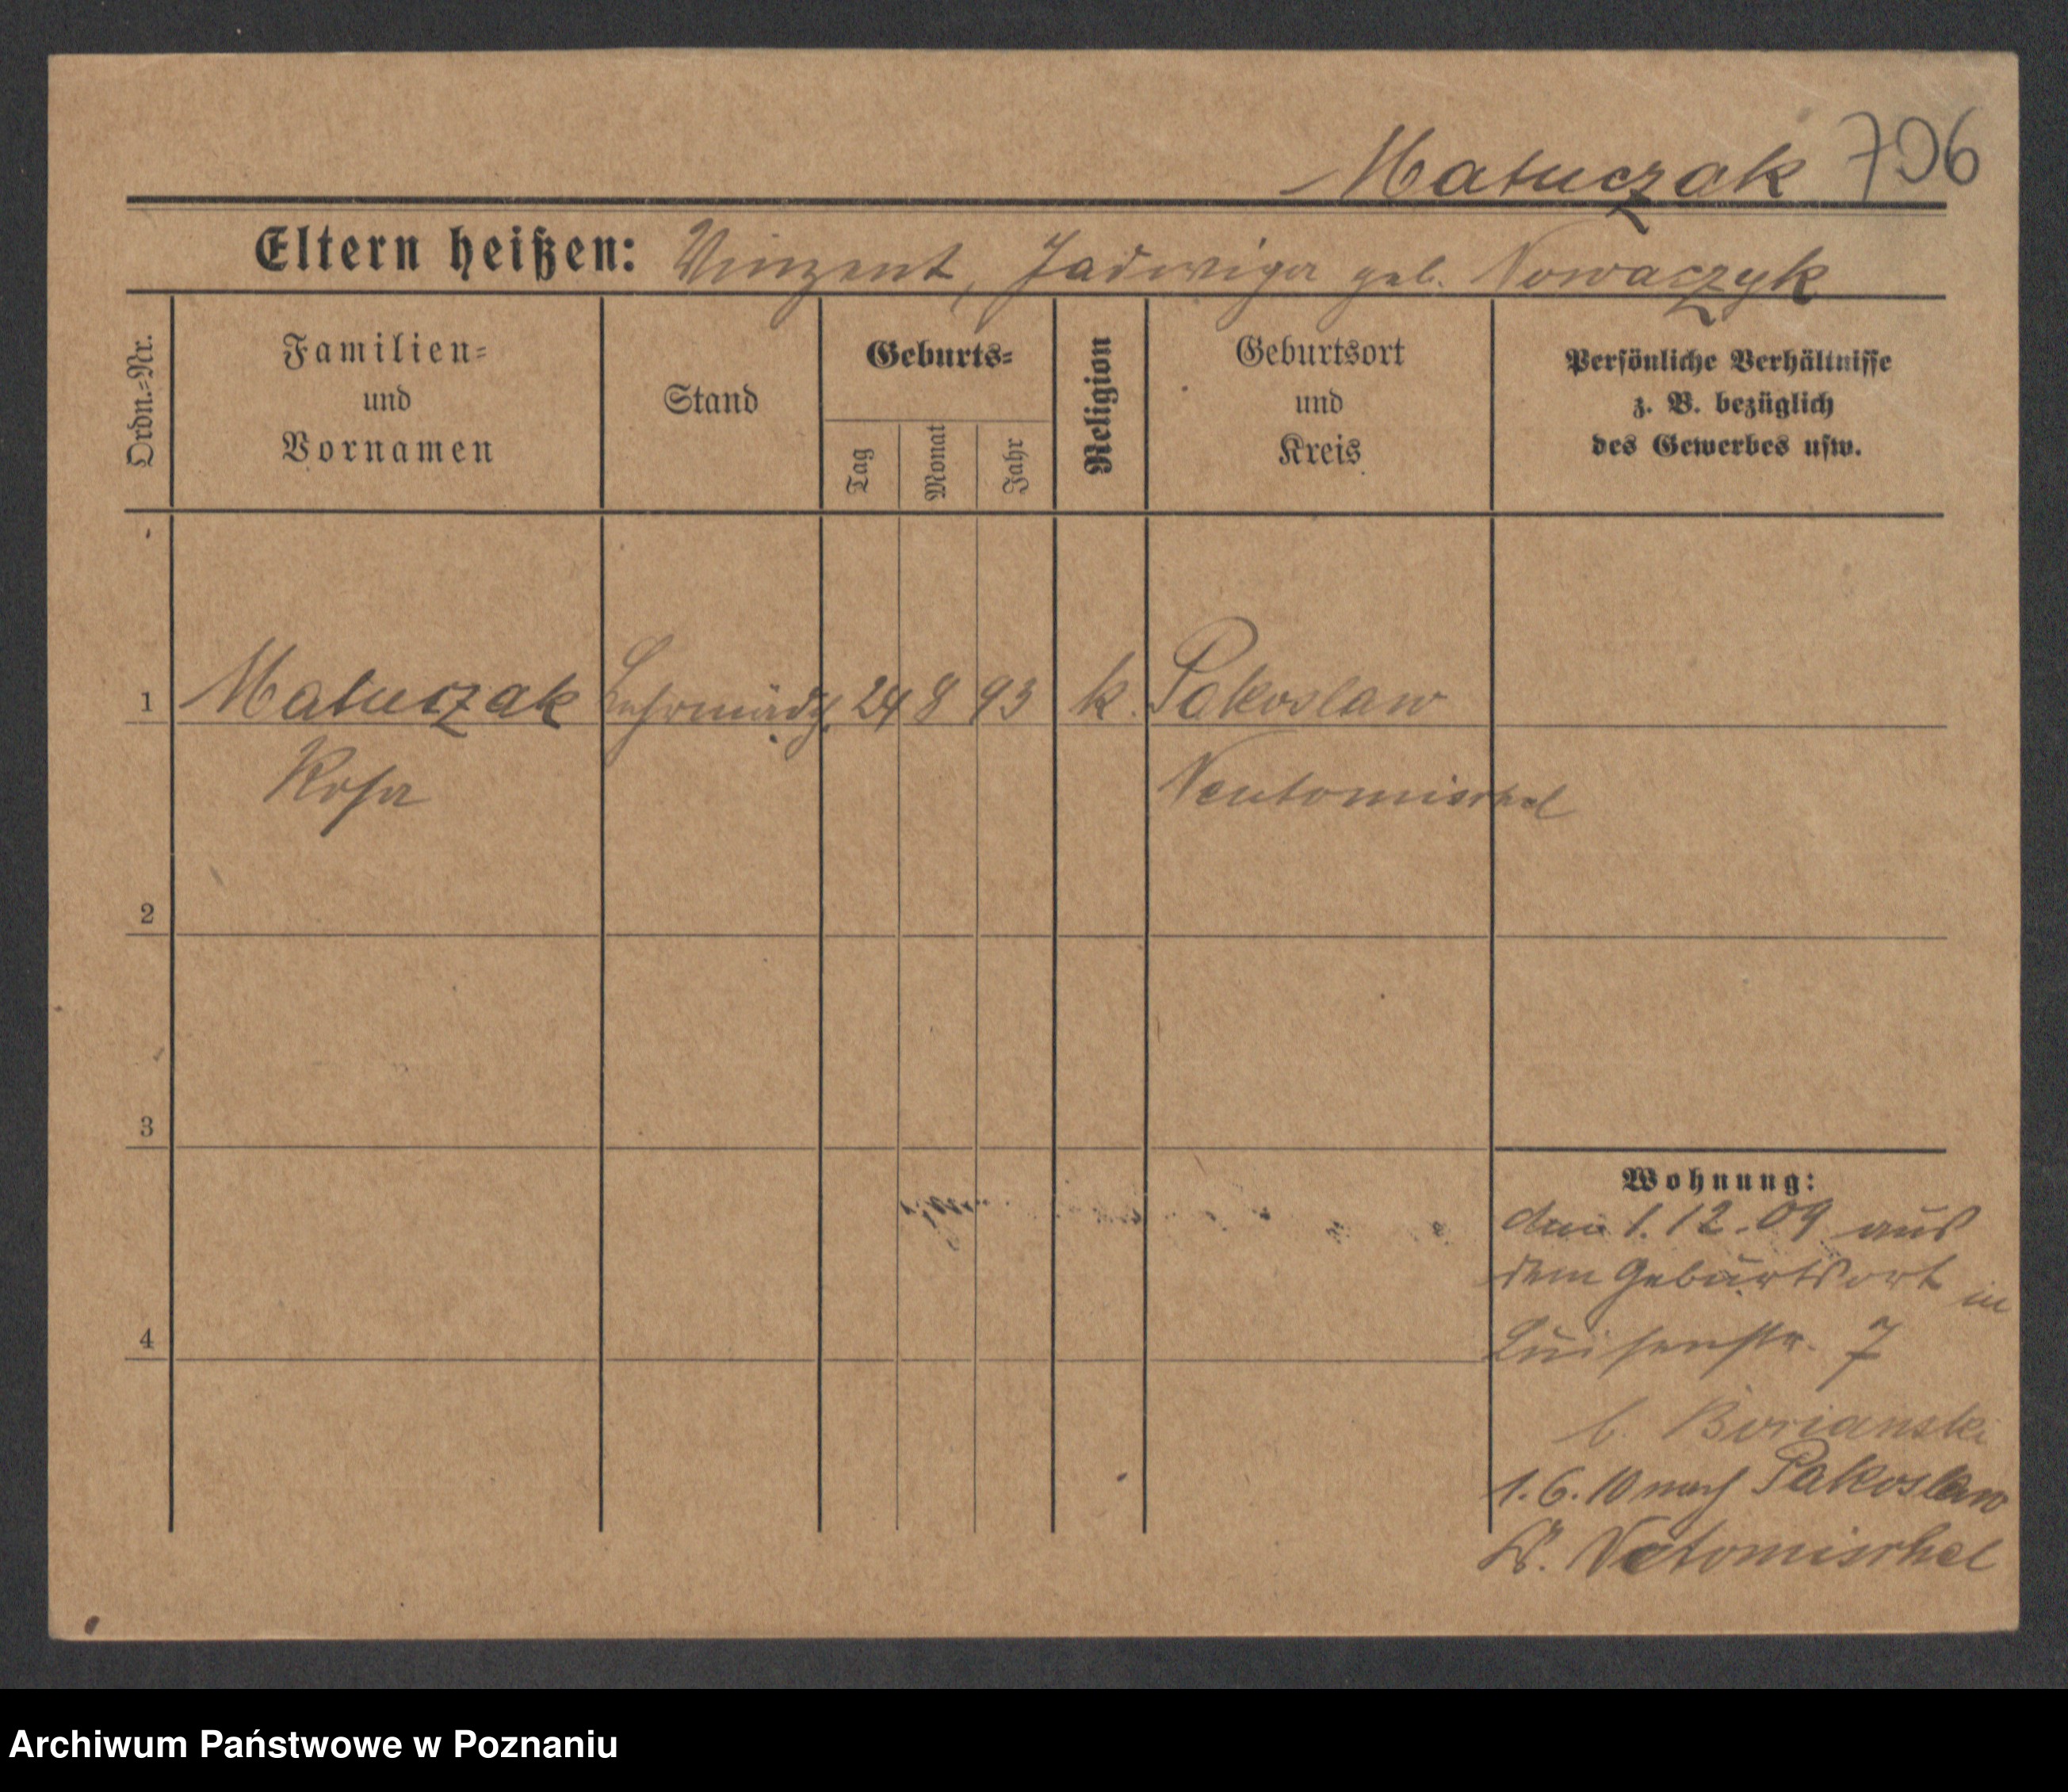 Matuczak 706
Eltern heißen: Vinzent, Jadwiga geb. Nowaczyk
Ordn.=Nr.
Familien=
und
Vornamen
Stand
Geburts=
Tag
Monat
Jahr
Religion
Geburtsort
und
Kreis
Persönliche Verhältnisse
z. B. bezüglich
des Gewerbes usw.
1 Matuczak Lehrmädch. 24 8 93 k. Pakoslaw
Rosa Neutomischel
2
3
4
Wohnung:
den 1. 12. 09 aus
dem Geburtsort in
Luisenstr. 7
b.
1. 6. 10 nach Pakoslaw
Kr. Netomischel
Archiwum Państwowe w Poznaniu